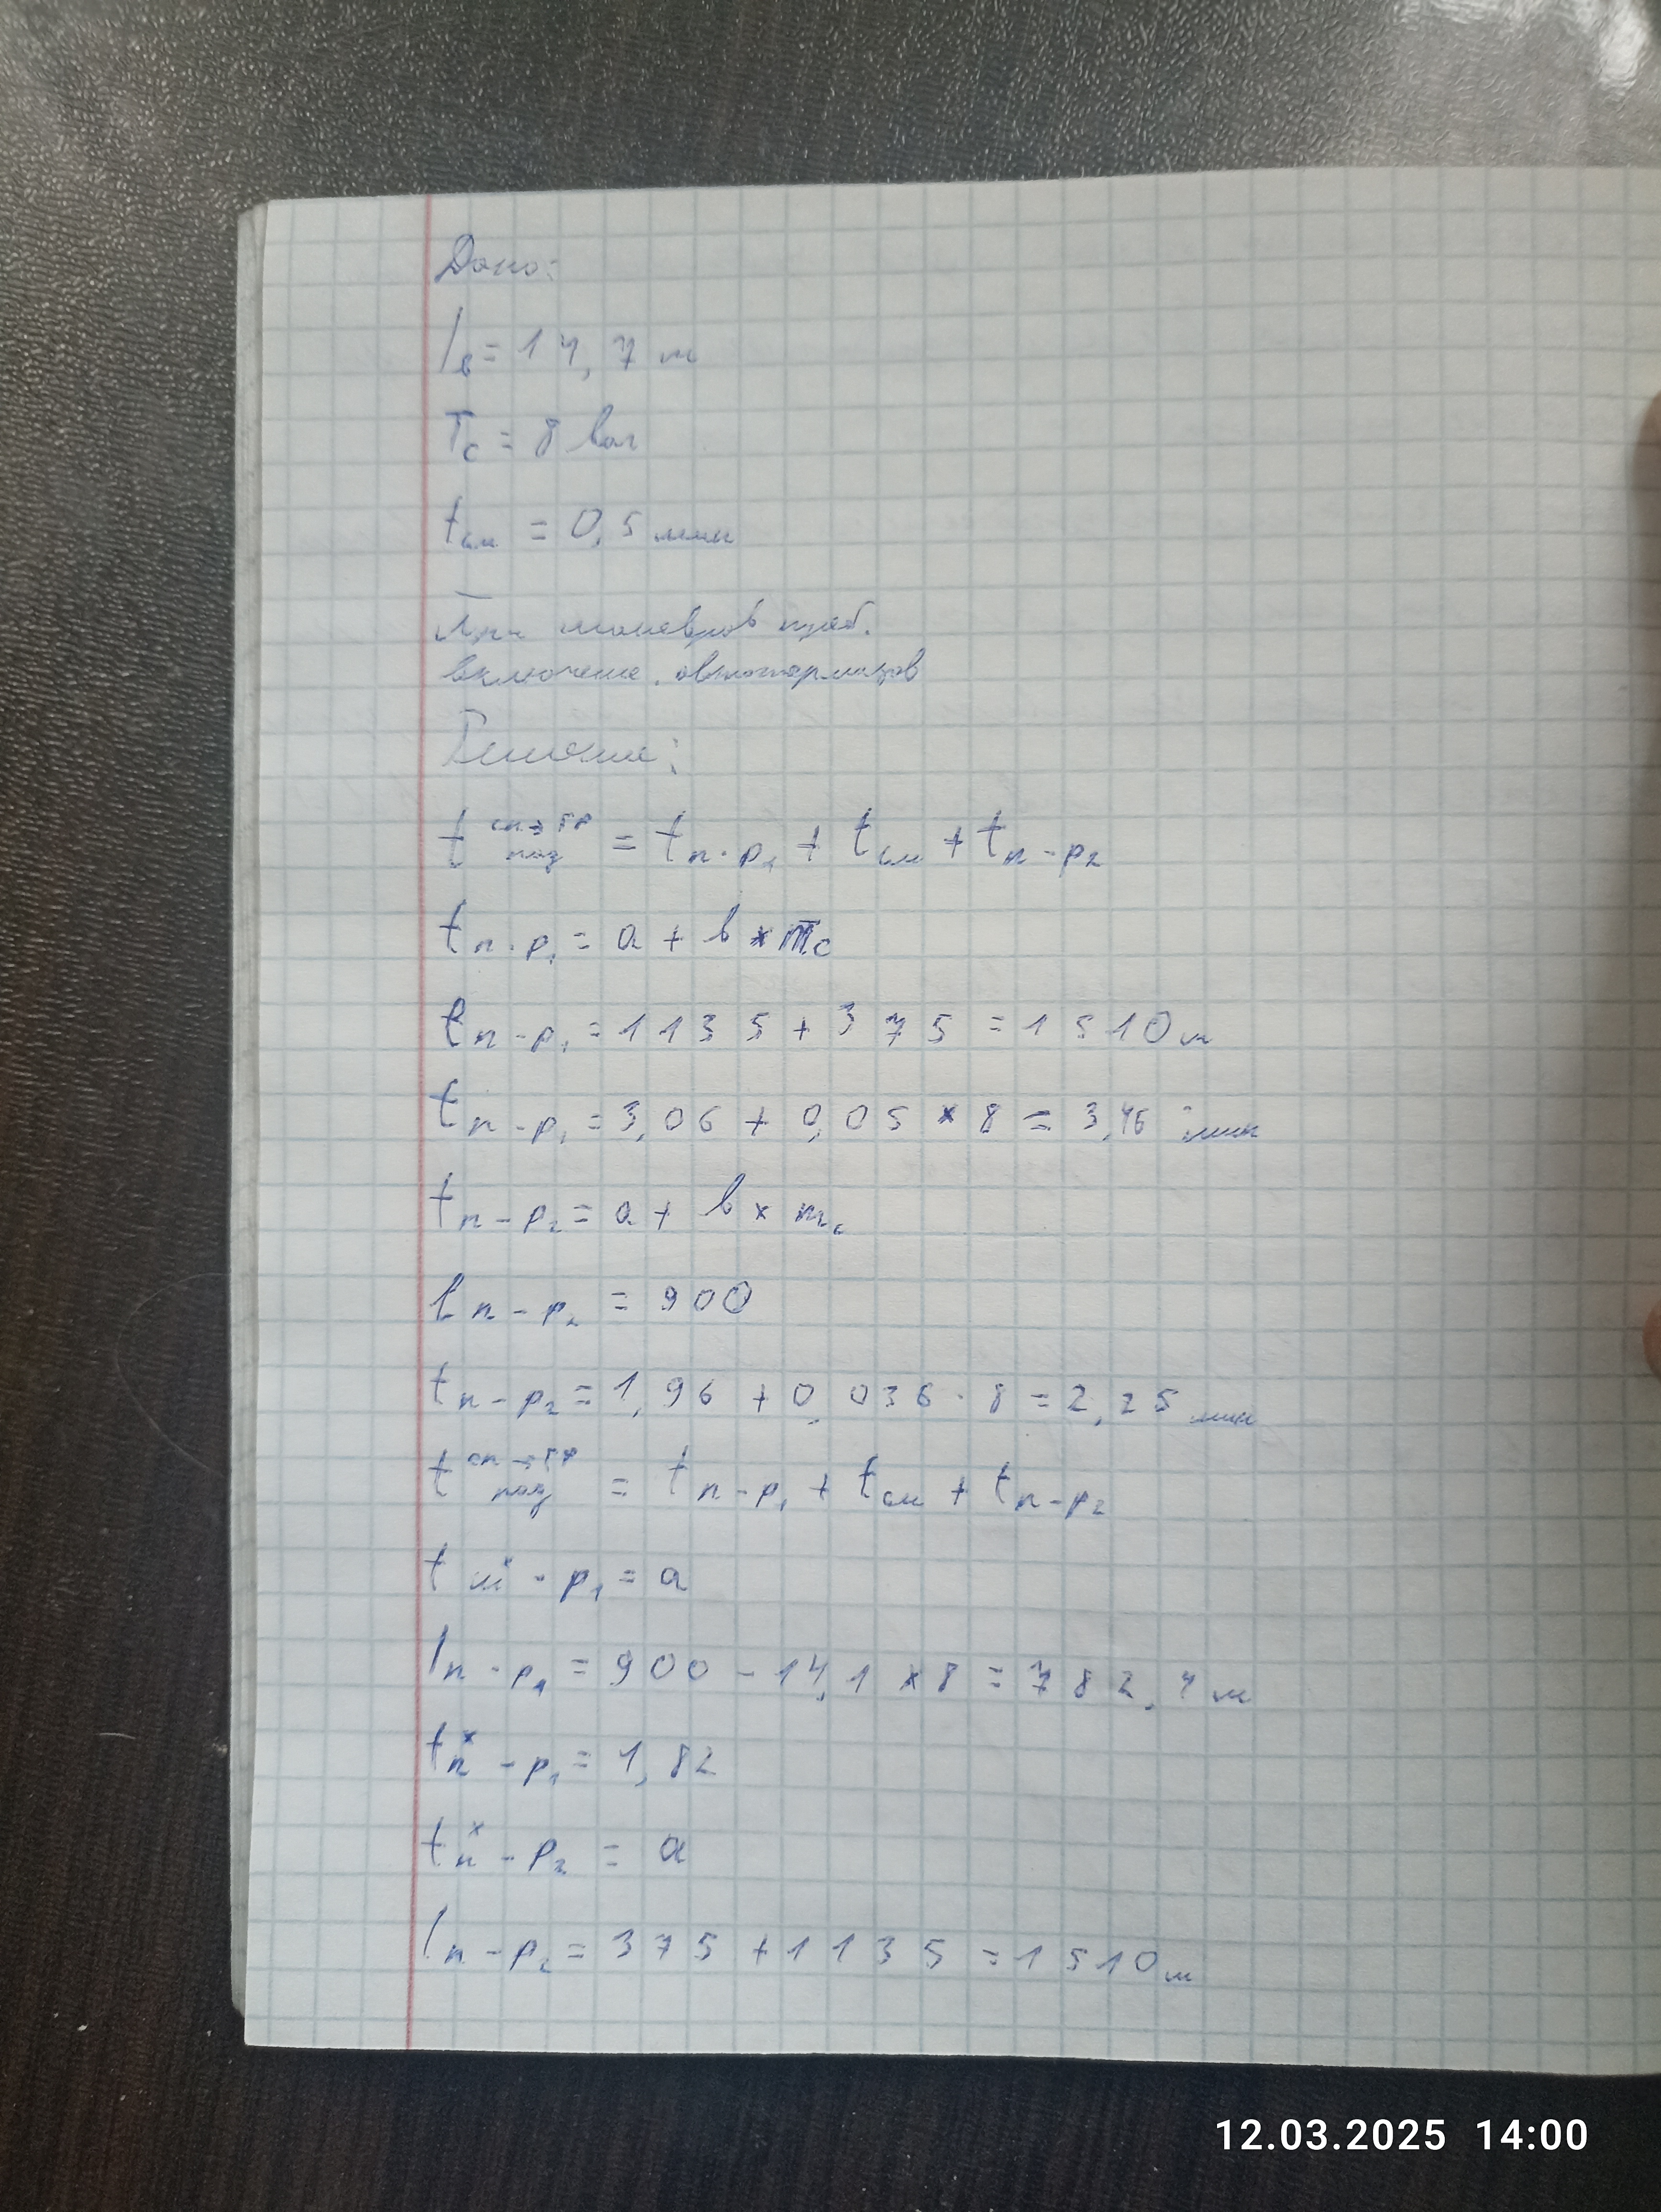 Дано:
lв = 14,7 м
Tс = 8 ваг
tсм = 0,5 мин
При маневров треб.
включение автотормазов
Решение:
t сп→ГР под = tп-р1 + tсм + tп-р2
tп-р1 = a + b × mс
lп-р1 = 1135 + 375 = 1510 м
tп-р1 = 3,06 + 0,05 × 8 = 3,46 мин
tп-р2 = a + b × mс
lп-р2 = 900
tп-р2 = 1,96 + 0,036 · 8 = 2,25 мин
t сп→ГР под = tп-р1 + tсм + tп-р2
tпх-р1 = a
lп-р1 = 900 - 14,1 × 8 = 782,4 м
tпх-р1 = 1,82
tпх-р2 = a
lп-р2 = 375 + 1135 = 1510 м
12.03.2025 14:00